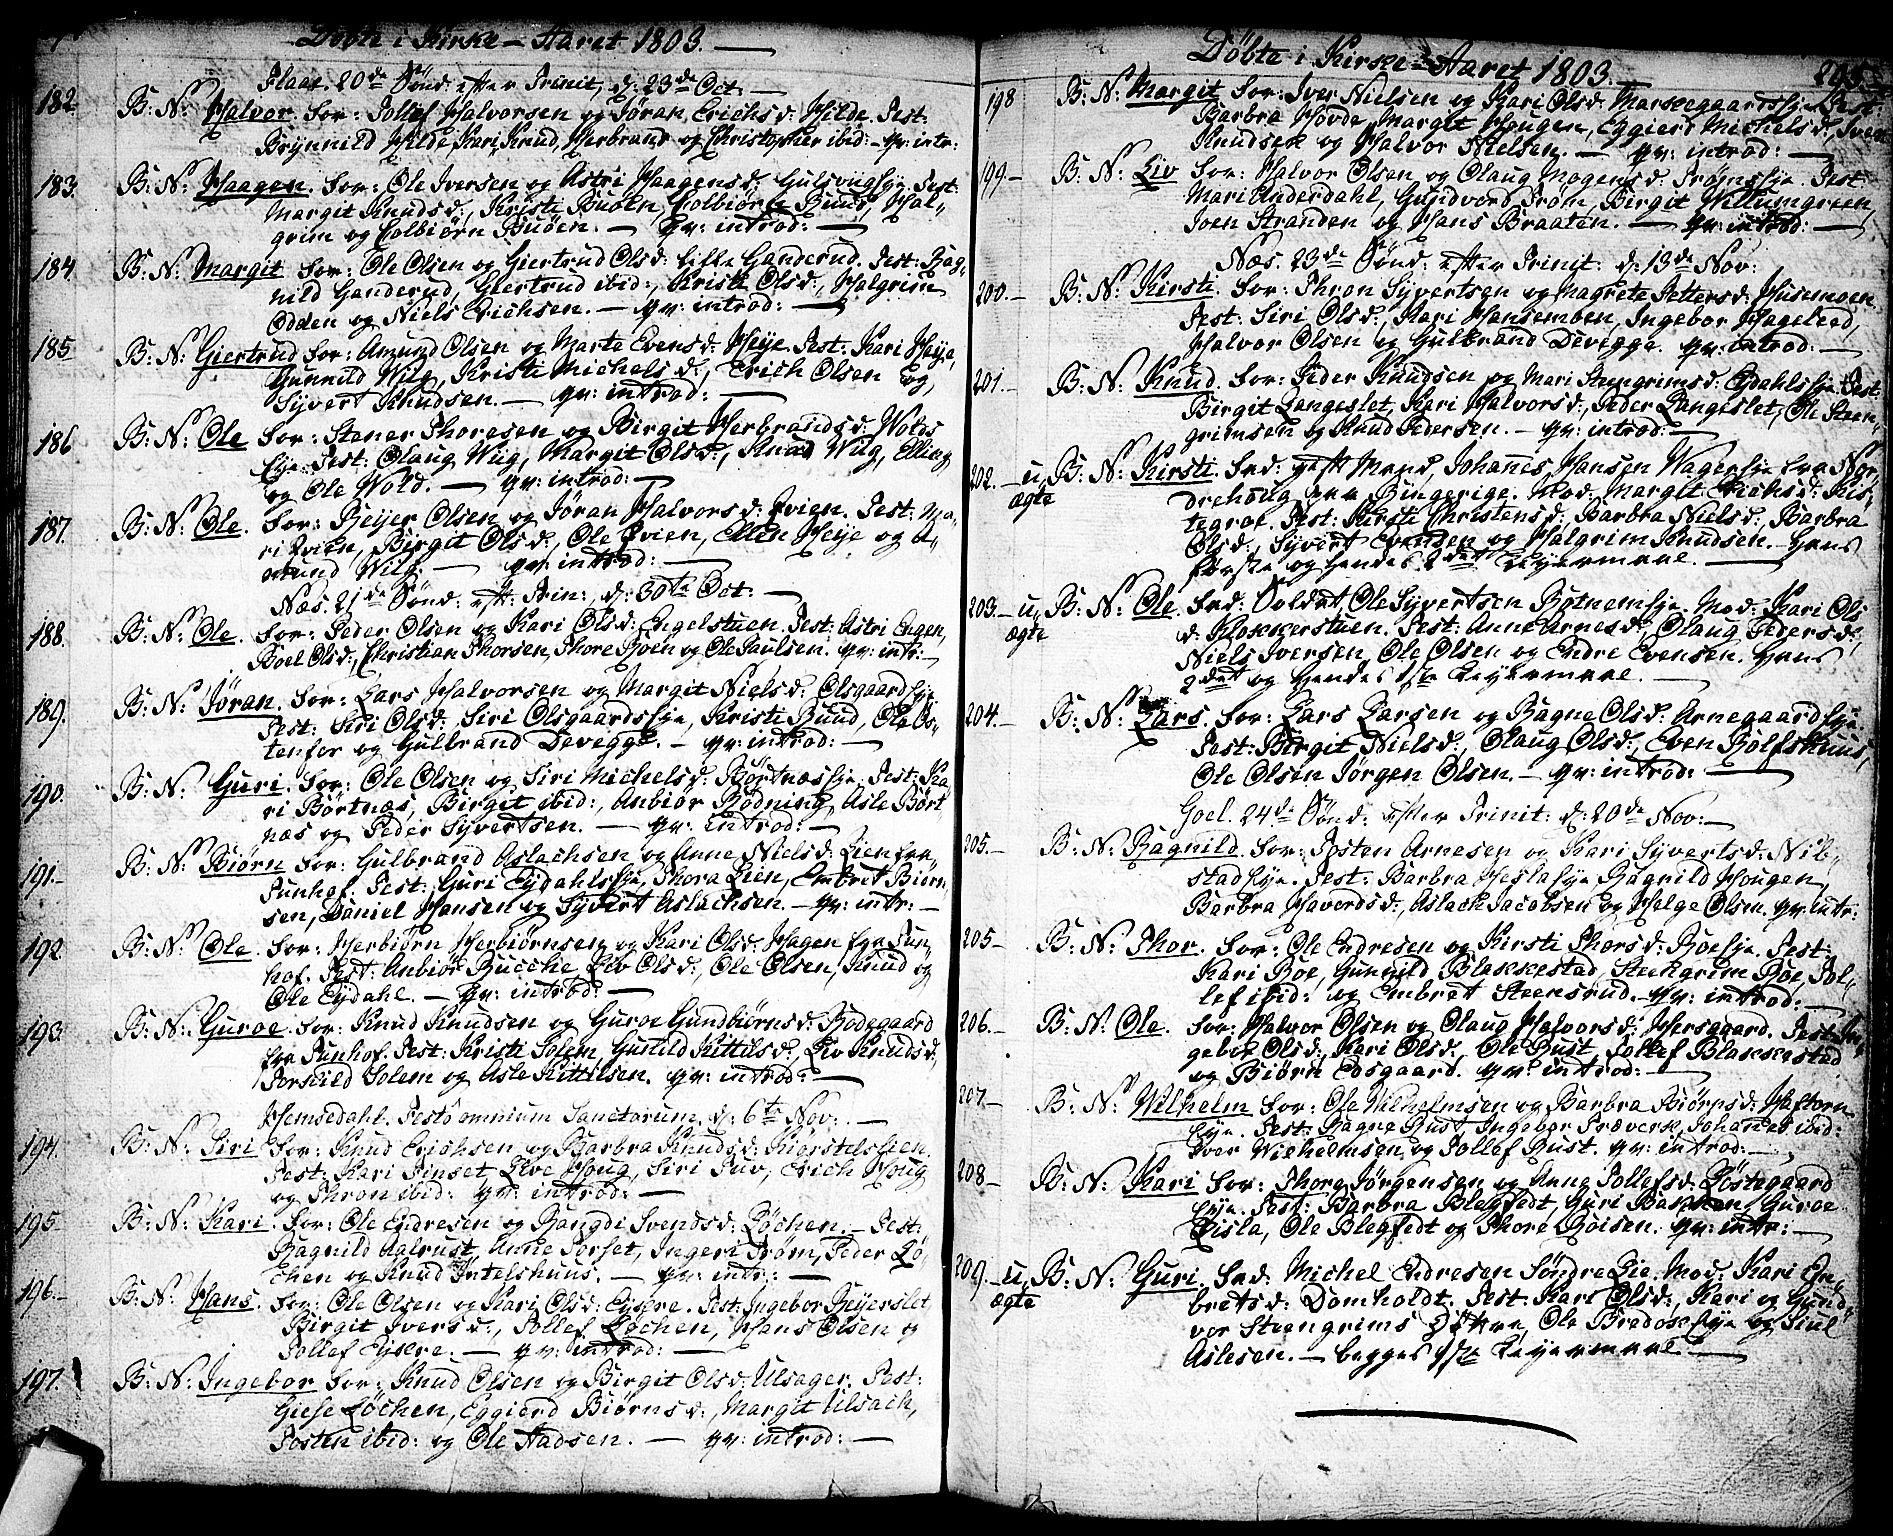 Döbte i Kirke-Aaret 1803.
Flaae. 20de Sönd: efter Trinit, d: 23de Oct:
182. B: N: Halvor. For: Tollef Halvorsen og Jöran Erichsd: Hilde. Test:
Brynnild Hilde, Kari, Knud, Herbrand og Christopher ibid: - qv: intr:
183. B: N: Haagen. For: Ole Iversen og Astri Haagensd: Gulsviigeje. Test:
Margit Knudsd:, Kristi Buöen, Colbiör Buind, Hal-
grim og Colbiörn Buöen. — qv: introd: —
184. B: N: Margit. For: Ole Olsen og Giertrud Olsd: Lille Ganderud. Test: Rag-
nild Ganderud, Giertrud ibid:, Kristi Olsd:, Halgrim
Odden og Niels Erichsen. — qv: introd: —
185. B: N: Giertrud. For: Amund Olsen og Marte Evensd: Heije. Test: Kari Heije,
Gunnild Wiig, Kristi Michelsd:, Erich Olsen Eeg,
Syvert Knudsen. — qv: introd: —
186. B: N: Ole. For: Stener Thoresen og Birgit Herbrandsd: Wolds
Eje. Test: Olaug Wiig, Margit Olsd:, Knud Wiig, Elling
og Ole Wold. — qv: introd: —
187. B: N: Ole. For: Reijer Olsen og Jöran Halvorsd: Evien. Test: Ma-
ri Evien, Birgit Olsd:, Ole Evien, Ellen Heije og A-
mund Wiig. — qv: introd: —
Næs. 21de Sönd: eft: Trin:, d: 30te Oct: —
188. B: N: Ole. For: Peder Olsen og Kari Olsd: Engelstuen. Test: Astri Engen,
Boel Olsd:, Christian Thorsen, Thore Roen og Ole Paulsen. qv: intr: —
189. B: N: Jöran. For: Lars Halvorsen og Margit Nielsd: Olsgaardseje
Test: Siri Olsd:, Siri Olsgaardseje, Kristi Rund, Ole Ös-
tenfor og Gulbrand Devegge. — qv: introd: —
190. B: N: Guri. For: Ole Olsen og Siri Michelsd: Börtnæseje. Test: Ka-
ri Börtnæs, Birgit ibid:, Anbiör Rödning, Asle Bört-
næs og Peder Syvertsen. — qv: introd: —
191. B: N: Biörn. For: Gulbrand Aslachsen og Anne Nielsd: Lien fra
Tunhof. Test: Guri Eydahlseje, Thora Lien, Embret Biörn-
sen, Daniel Hansen og Syvert Aslachsen. — qv: intr: —
192. B: N: Ole. For: Herbiörn Herbiörnsen og Kari Olsd: Hagen fra Tun-
hof. Test: Anbiör Rucche, Liv Olsd:, Ole Olsen, Knud og
Ole Eydahl. — qv: introd: —
193. B: N: Guroe. For: Knud Knudsen og Guroe Gundbiörnsd: Rodegaard
fra Tunhof. Test: Kristi Solem, Gunild Kittilsd:, Liv Knudsd:,
Torskild Solem og Asle Kittilsen. qv: introd: —
Hemsedahl. Festo omnium Sanctorum, d: 6te Nov: —
194. B: N: Siri. For: Knud Erichsen og Barbra Knudsd: Kiörstelslien.
Test: Kari Finset, Live Houg, Siri Tuv, Erich Houg
og Thron ibid: qv: introd: —
195. B: N: Kari. For: Ole Endresen og Rangdi Svendsd: Löchen. — Test:
Ragnild Aalrust, Anne Torset, Ingeri Tröm, Peder Lö-
chen og Knud Intelshuus. — qv: intr: —
196. B: N: Hans. For: Ole Olsen og Kari Olsd: Eysere. Test: Ingebor Reijerslet,
Birgit Iversd:, Tollef Löchen, Hans Olsen og
Tollef Eysere. — qv: introd: —
197. B: N: Ingebor. For: Knud Olsen og Birgit Olsd: Ulsager. Test:
Giese Löchen, Eggierd Biörnsd:, Margit Ulsach,
Tosten ibid: og Ole Aadsen. — qv: introd: —
Döbte i Kirke-Aaret 1803. 295.
198 B: N: Margit. For: Iver Nielsen og Kari Olsd: Markegaardseje. Test:
Barbra Hovde, Margit Hougen, Eggierd Michelsd:, Svend
Knudsen og Halvor Nielsen. — qv: introd: —
199. B: N: Liv. For: Halvor Olsen og Olaug Mogensd: Trömseje. Test:
Mari Anderdahl, Gundvord Tröm, Birgit Willumgreen,
Joen Stranden og Hans Braaten. — qv: introd: —
Næs. 23de Sönd: efter Trinit: d: 13de Nov:
200. B: N: Kirsti. For: Thron Syvertsen og Magrete Pettersd: Husemoen
Test: Siri Olsd:, Kari Hansemoen, Ingebor Hageleed,
Halvor Olsen og Gulbrand Devegge. qv: introd: —
201. B: N: Knud. For: Peder Knudsen og Mari Steengrimsd: Eydahlseje. Test:
Birgit Langeslet, Kari Halvorsd:, Peder Langeslet, Ole Steen-
grimsen og Knud Pedersen. — qv: introd: —
202. u, ægte B: N: Kirsti. Fad: gift Mand, Johanes Hansen Wagerseje fra Nor-
drehoug paa Ringerige. Mod: Margit Erichsd: Kis-
tegrof. Test: Kirsti Christensd:, Barbra Nielsd:, Barbra
Olsd:, Syvert Evensen og Halgrim Knudsen. Hans
förste og hendes 2det Leyermaal. —
203. u, ægte B: N: Ole. Fad: Soldat, Ole Syvertsen Rotnemseje. Mod: Kari Ols
d: Klokkerstuen. Test: Anne Arnesd:, Olaug Pedersd:,
Niels Iversen, Ole Olsen og Endre Evensen. Hans
2det og hendes 1ste Leyermaal. —
204. B: N: Lars. For: Lars Larsen og Ragne Olsd: Arnegaardseje
Test: Birgit Nielsd:, Olaug Olsd:, Even Rolfshuus,
Ole Olsen, Jörgen Olsen. — qv: introd: —
Goel. 24de Sönd: efter Trinit: d: 20de Nov: —
205. B: N: Ragnild. For: Tosten Arnesen og Kari Syvertsd: Nib-
stadeje. Test: Barbra Heslaeje, Ragnild Hougen,
Barbra Havordsd:, Aslach Jacobsen og Helge Olsen. qv: intr:
205. B: N: Thor. For: Ole Endresen og Kirsti Thorsd: Roeeje. Test:
Kari Roe, Gunild Blakkestad, Steengrim Roe, Tol-
lef ibid: og Embret Steensrud. qv: introd: —
206. B: N: Ole. For: Halvor Olsen og Olaug Halvorsd: Hersgaard. Test: In-
gebor Olsd:, Kari Olsd:, Ole Rust, Tollef Blakkestad
og Biörn Eosgaard. qv: introd: —
207. B: N: Wilhelm. For: Ole Wilhelmsen og Barbra Biörnsd: Haftorn
Eje. Test: Ragne Rust, Ingebor Præverk, Johanes ibid:
Iver Wilhelmsen og Tollef Rust. qv: introd: —
208. B: N: Kari. For: Thore Jörgensen og Anne Tollefsd: Löstegaard
Eje. Test: Barbra Blegfedt, Guri Bakken, Guroe
Lisla, Ole Blegfedt og Thore Roisen. qv: intr: —
209. u, ægte B: N: Guri. Fad: Michel Endresen Söndre Lie. Mod: Kari Em-
bretsd: Domholdt. Test: Kari Olsd:, Kari og Gund-
vor Steengrims Döttre, Ole Bradokeje og Siul
Aslesen. — begges 1ste Leyermaal. —